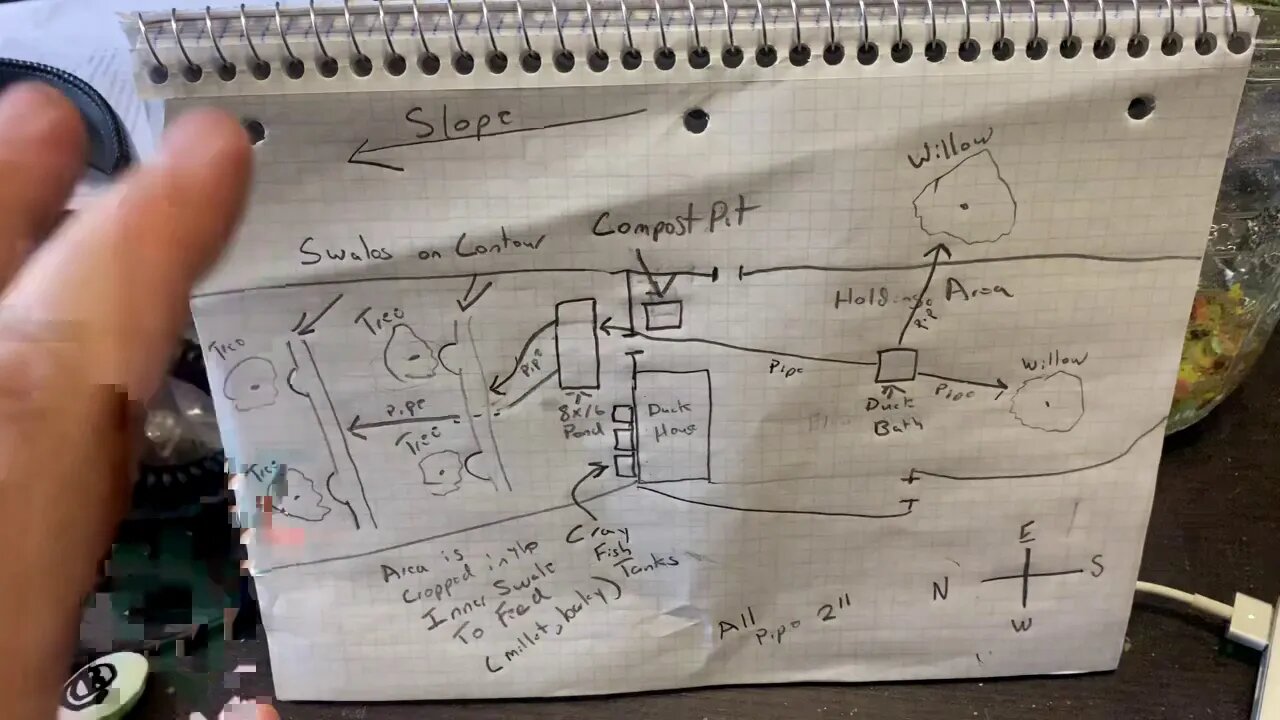 Slope
Willow
Compost Pit
Swales on Contour
Holding Area
Pipe
Tree
Tree
Pipe
Pipe
Pipe
Willow
8x16
Pond
Duck
House
Duck
Bath
pipe
Tree
Tree
Cray
Fish
Tanks
Area is
cropped in the
Inner Swale
To Feed
(millet, barley)
All
pipe 2"
E
N
S
W